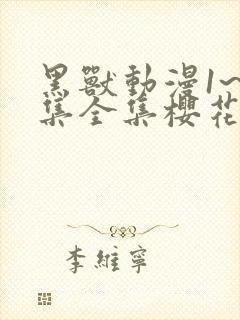 黑獸動漫1~
集全集櫻花
李維寧